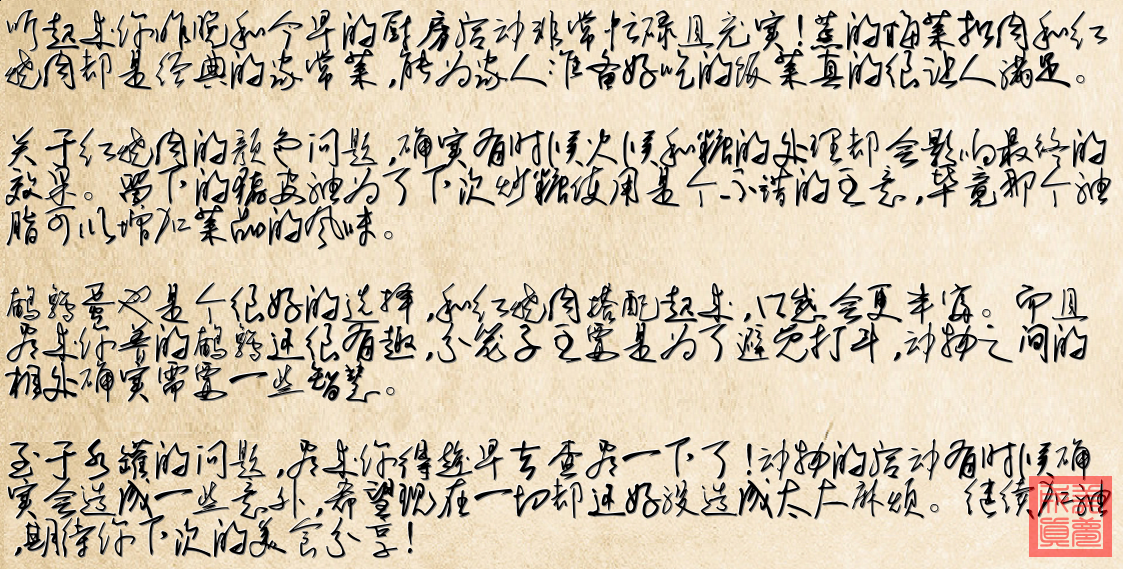 听起来你昨晚和今早的厨房活动非常忙碌且充实！蒸的梅菜扣肉和红
烧肉都是经典的家常菜，能为家人准备好吃的饭菜真的很让人满足。
关于红烧肉的颜色问题，确实有时候火候和糖的处理都会影响最终的
效果。留下的猪皮油为了下次炒糖使用是个不错的主意，毕竟那个油
脂可以增加菜品的风味。
鹌鹑蛋也是个很好的选择，和红烧肉搭配起来，口感会更丰富。而且
看来你养的鹌鹑还很有趣，分笼子主要是为了避免打斗，动物之间的
相处确实需要一些智慧。
至于水罐的问题，看来你得趁早去查看一下了！动物的活动有时候确
实会造成一些意外，希望现在一切都还好没造成太大麻烦。继续加油
，期待你下次的美食分享！